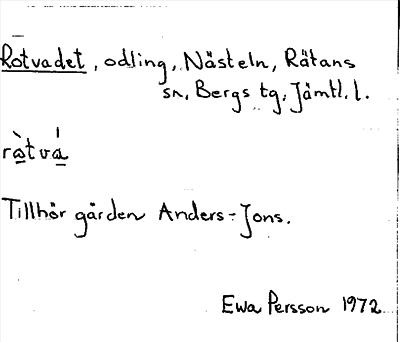 Rotvadet, odling, Nästeln, Rätans
sn, Bergs tg, Jämtl. l.
rà̲tvá̲
Tillhör gården Anders-Jons.
Ewa Persson 1972